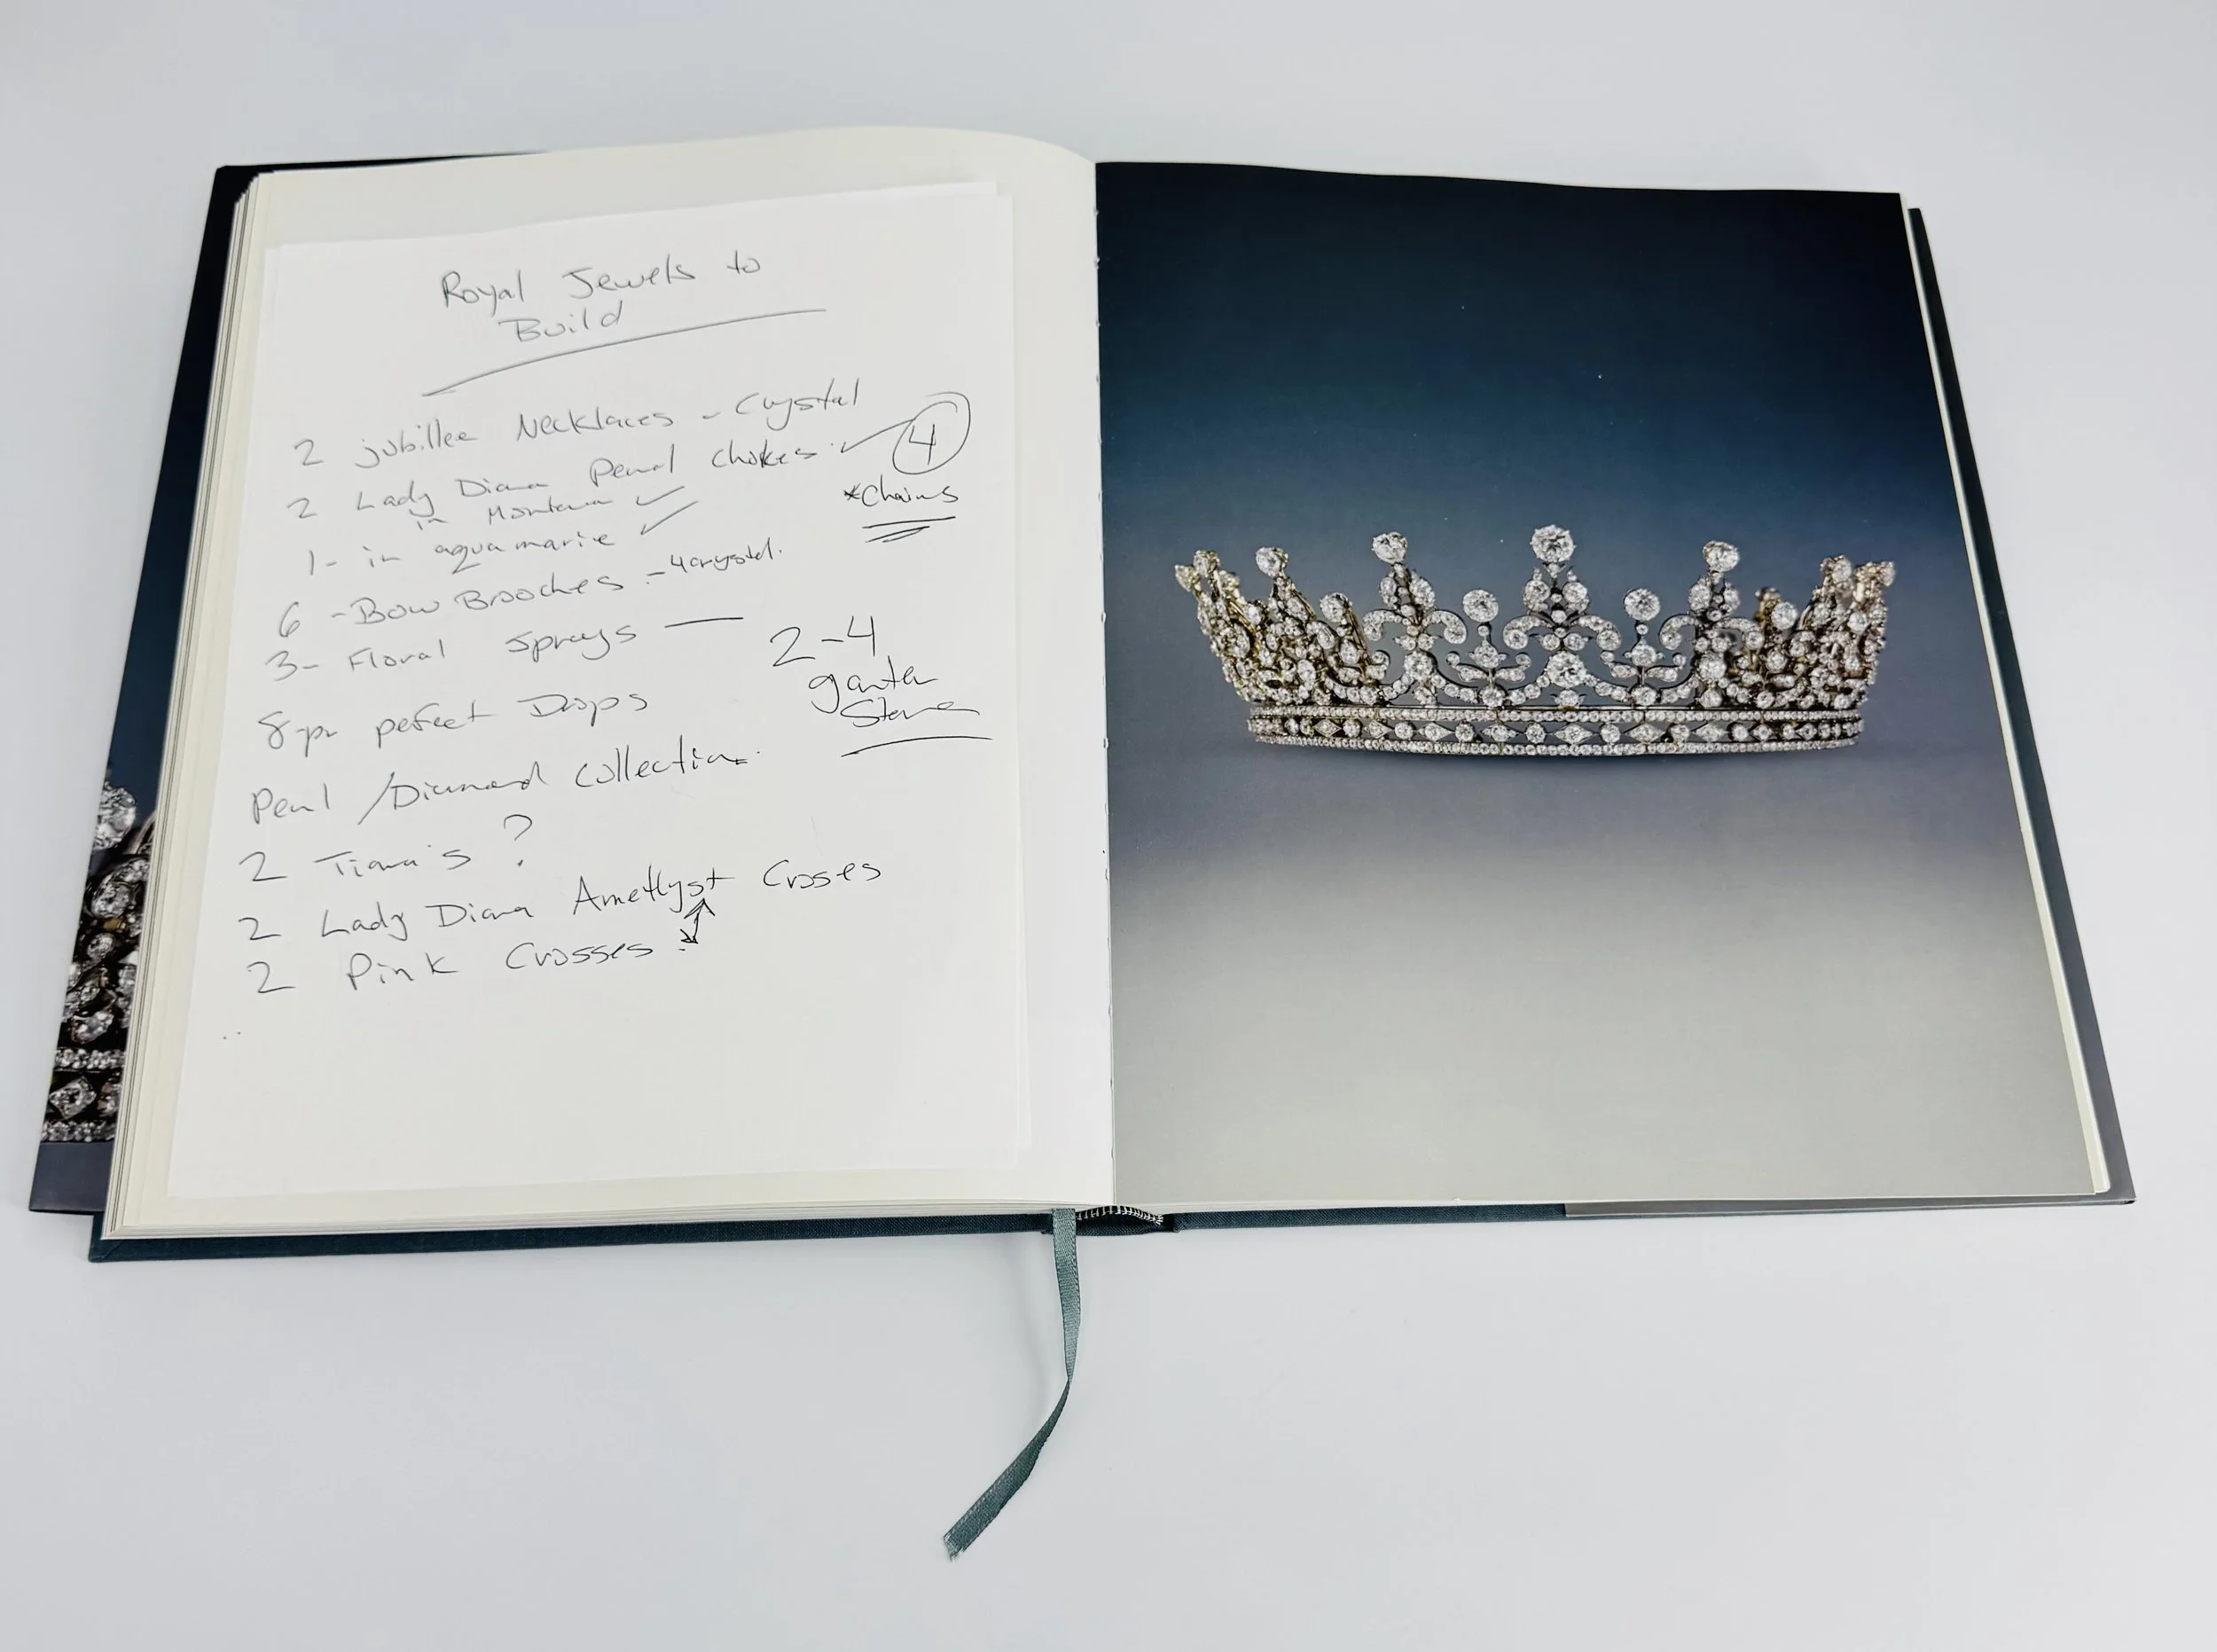 Royal Jewels to
Build
2 jubillee Necklaces - Crystal
2 Lady Diana Pearl chokes 4
in Montana
*Chains
1- in aquamarie
6 - Bow Brooches - 4 crystal.
3- Floral Sprays
2-4
garter
8 pr perfect Drops
Pearl / Diamond collection.
2 Tiara's ?
2 Lady Diana Ametlyst Croses
2 Pink Crosses